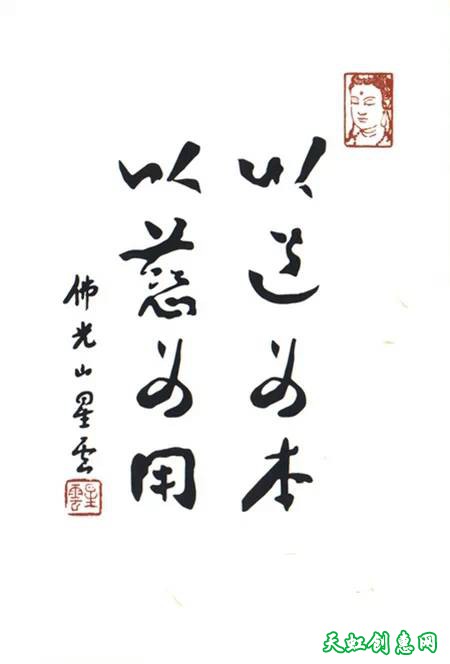 以道为本
以慈为用
佛光山星云
星雲
天虹创意网